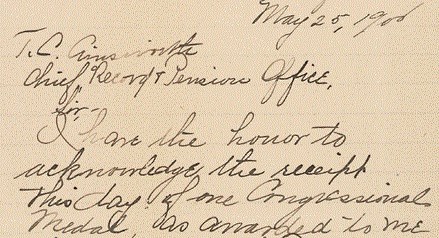 May 25, 190
T. C. Ainsworth
Chief Record & Pension Office,
Sir:-
I have the honor to
acknowledge the receipt
this day of one Congressional
Medal, as awarded to me